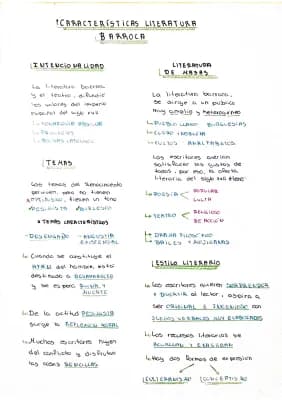 CARACTERÍSTICAS LITERATURA
BARROCA
INTENCIONALIDAD
La literatura barroca
y el teatro, difunde
los valores del imperio
español del siglo XVII
TEMAS
Los temas del Renacimiento
perviven, pero no tienen
optimismo, tienen un tono
PESIMISTA
+ TEMAS CARACTERÍSTICOS
DESENGAÑO
ANGUSTIA
EXISTENCIAL
Cuando se constituye el
del hombre, está
destinado a DESMORONARLO
y se espera
MUERTE
De la actitud PESIMISTA
surge la REFLEXIÓN MORAL
Muchos escritores huyen
del conflicto y disfrutan
las cosas SENCILLAS
LITERATURA
DE MASAS
La literatura barroca,
se dirige a un público
muy amplio y heterogéneo
PUEBLO LLANO BURGUESÍAS
CLERO + NOBLEZA
CULTOS ANALFABETOS
Los escritores querían
satisfacer los gustos de
todos, por eso, la oferta
literaria del siglo XVII tiene
POESÍA
POPULAR
CULTA
TEATRO
RELIGIOSO
DE ACCIÓN
DRAMA FILOSÓFICO
BAILES + MOJIGANGAS
ESTILO LITERARIO
Los escritores quieren SORPRENDER
+ DIVERTIR al lector, aspira a
ser ORIGINAL E INGENIOSO con
JUEGOS VERBALES MUY ELABORADOS
Los recursos literarios se
ACUMULAN Y EXAGERAN
Hay dos formas de expresión
CULTERANISMO
CONCEPTISMO